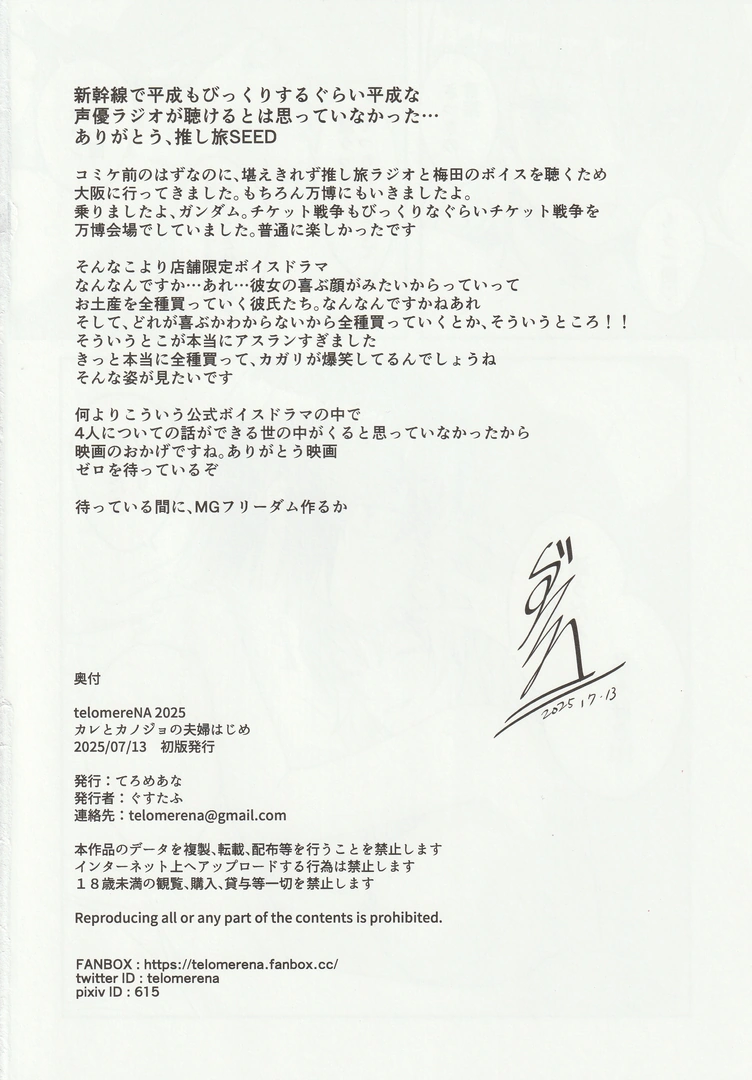 新幹線で平成もびっくりするぐらい平成な
声優ラジオが聴けるとは思っていなかった…
ありがとう、推し旅SEED
コミケ前のはずなのに、堪えきれず推し旅ラジオと梅田のボイスを聴くため
大阪に行ってきました。もちろん万博にもいきましたよ。
乗りましたよ、ガンダム。チケット戦争もびっくりなぐらいチケット戦争を
万博会場でしていました。普通に楽しかったです
そんなこより店舗限定ボイスドラマ
なんなんですか…あれ…彼女の喜ぶ顔がみたいからっていって
お土産を全種買っていく彼氏たち。なんなんですかねあれ
そして、どれが喜ぶかわからないから全種買っていくとか、そういうところ！！
そういうとこが本当にアスランすぎました
きっと本当に全種買って、カガリが爆笑してるんでしょうね
そんな姿が見たいです
何よりこういう公式ボイスドラマの中で
4人についての話ができる世の中がくると思っていなかったから
映画のおかげですね。ありがとう映画
ゼロを待っているぞ
待っている間に、MGフリーダム作るか
2025.7.13
奥付
telomereNA 2025
カレとカノジョの夫婦はじめ
2025/07/13　初版発行
発行：てろめあな
発行者：ぐすたふ
連絡先：telomerena@gmail.com
本作品のデータを複製、転載、配布等を行うことを禁止します
インターネット上へアップロードする行為は禁止します
１８歳未満の観覧、購入、貸与等一切を禁止します
Reproducing all or any part of the contents is prohibited.
FANBOX : https://telomerena.fanbox.cc/
twitter ID : telomerena
pixiv ID : 615